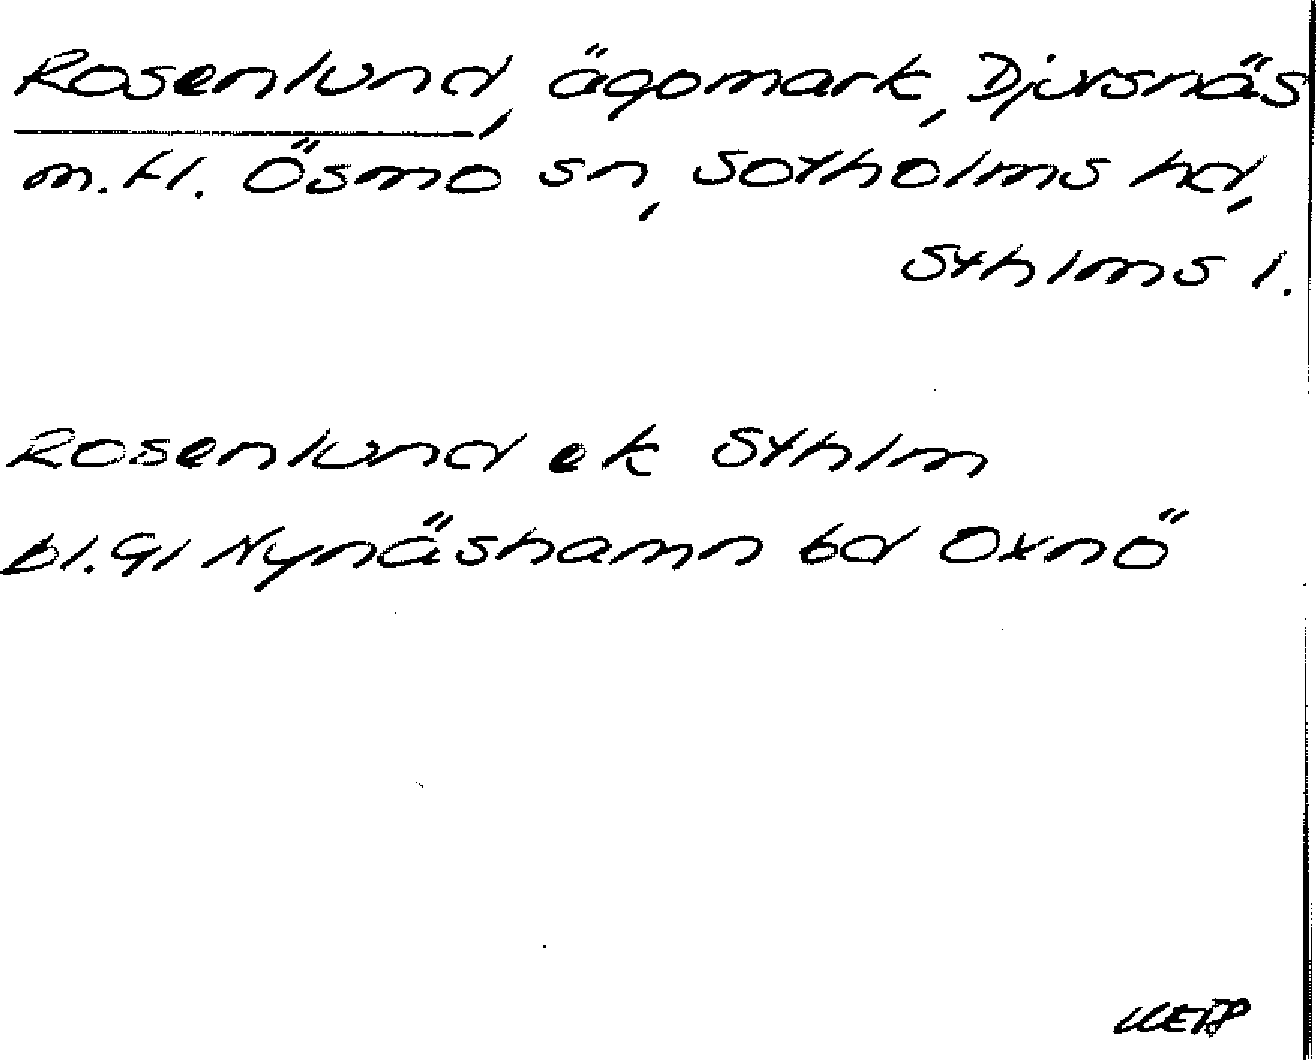 Rosenlund, ägomark, Djursnäs
m.fl. Ösmo sn, Sotholms hd,
Sthlms l.
Rosenlund ek Sthlm
bl. 91 Nynäshamn bd Oxnö